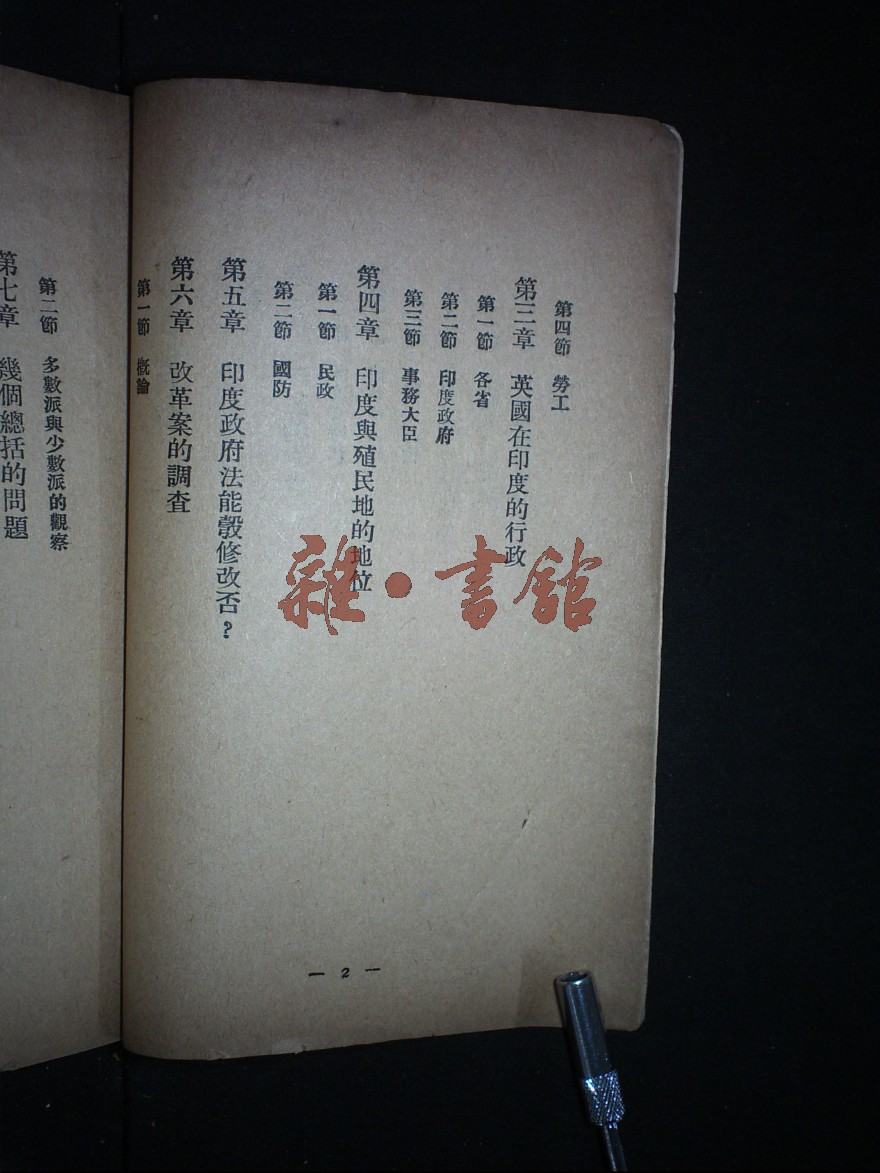 第四節 勞工
第三章 英國在印度的行政
第一節 各省
第二節 印度政府
第三節 事務大臣
第四章 印度與殖民地的地位
第一節 民政
第二節 國防
第五章 印度政府法能彀修改否？
第六章 改革案的調查
第一節 概論
— 2 —
第二節 多數派與少數派的觀察
第七章 幾個總括的問題
雜·書館